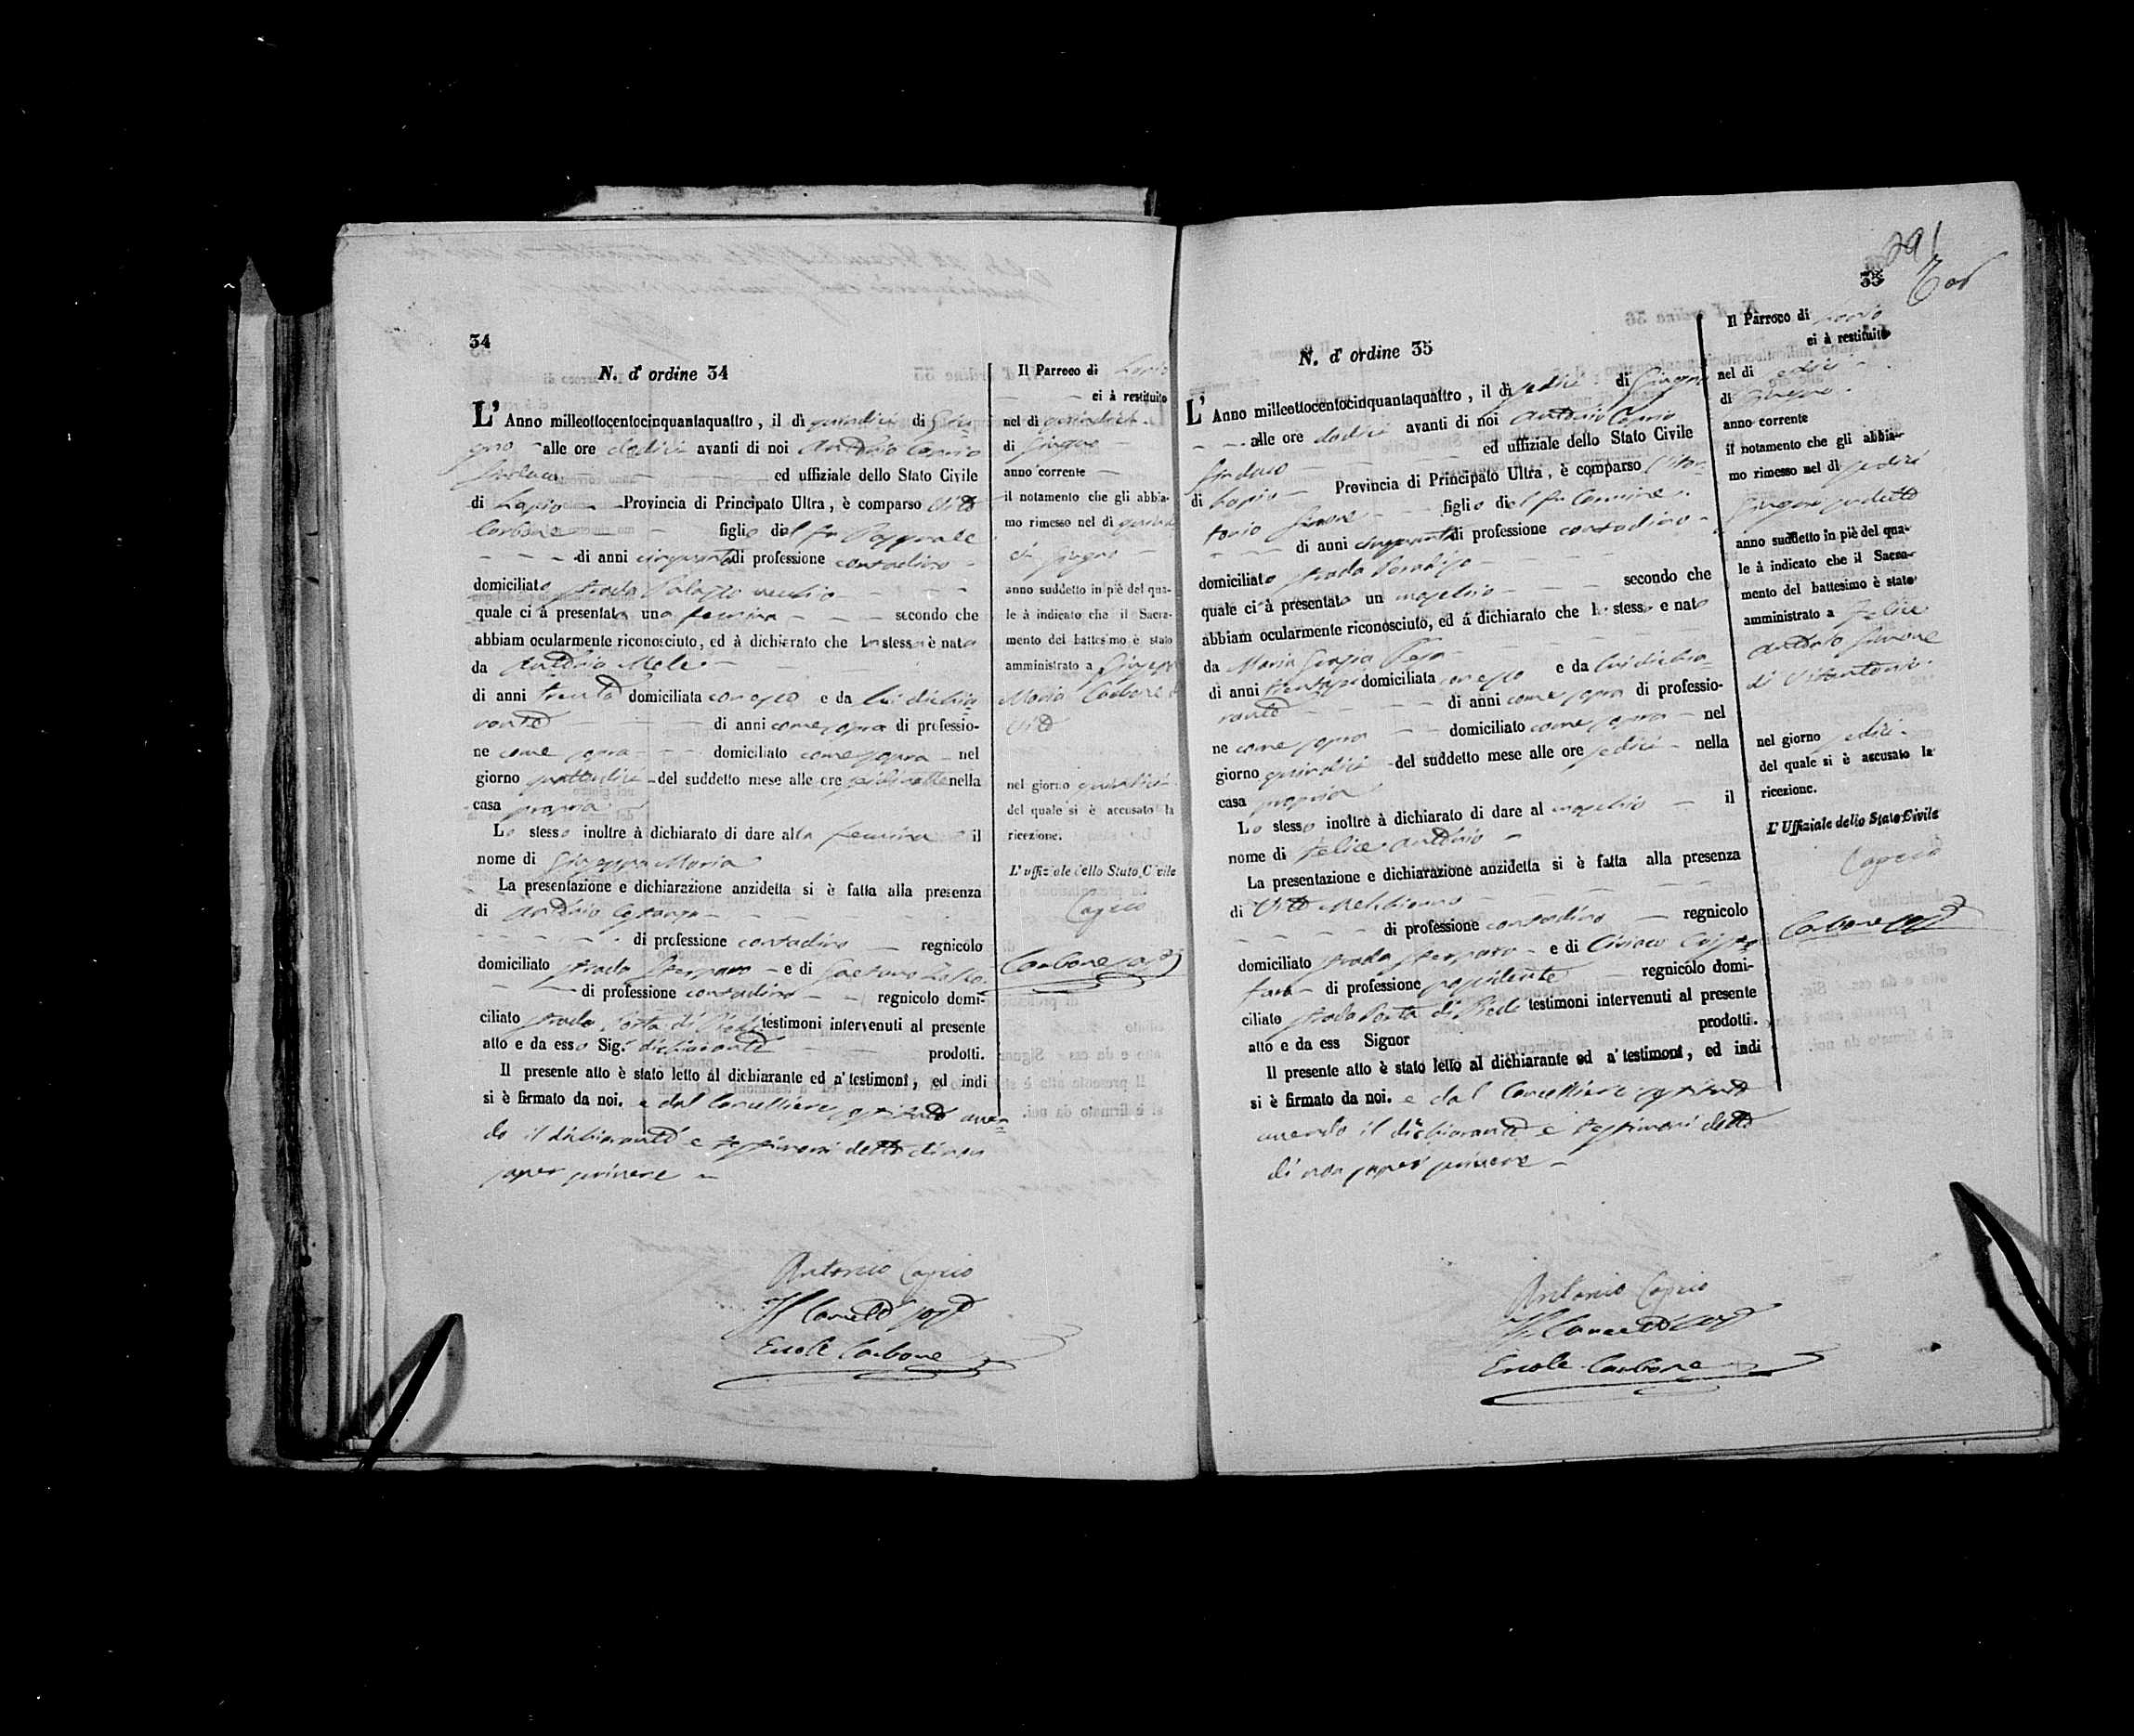 34
N. d'ordine 34
L' Anno milleottocentocinquantaquattro, il dì quindici di Giu-
gno alle ore dodici avanti di noi Antonio Caprio
Sindaco ed uffiziale dello Stato Civile
di Lapio Provincia di Principato Ultra, è comparso Vito
Carbone figlio del fu Pasquale
di anni cinquanta di professione contadino
domiciliato strada Palazzo vecchio
quale ci à presentato una femina secondo che
abbiam ocularmente riconosciuto, ed à dichiarato che la stessa è nata
da Antonia Mele
di anni trenta domiciliata con esso e da lui dichia
rante di anni come sopra di professio-
ne come sopra domiciliato come sopra nel
giorno quattordici del suddetto mese alle ore nella
casa propria
Lo stesso inoltre à dichiarato di dare alla femina il
nome di Giuseppa Maria
La presentazione e dichiarazione anzidetta si è fatta alla presenza
di Antonio
di professione contadino regnicolo
domiciliato strada e di Gaetano
di professione contadino regnicolo domi-
ciliato strada Porta di Piedi testimoni intervenuti al presente
atto e da esso Sig.r dichiarante prodotti.
Il presente atto è stato letto al dichiarante ed a' testimoni, ed indi
si è firmato da noi. e dal Cancelliere sostituto aven
do il dichiarante e testimoni detto di non
saper scrivere
Antonio Caprio
Il Cancell.e sost.o
Ercole Carbone
Il Parroco di Lapio
ci à restituito
nel dì quindici
di Giugno
anno corrente
il notamento che gli abbia-
mo rimesso nel dì quindi
ci Giugno
anno suddetto in piè del qua-
le à indicato che il Sacra-
mento del battesimo è stato
amministrato a Giuseppa
Maria Carbone di
Vito
nel giorno quindici
del quale si è accusato la
ricezione.
L'uffiziale dello Stato Civile
Caprio
Carbone sost.o
291
35
N. d'ordine 35
L' Anno milleottocentocinquantaquattro, il dì sedici di Giugno
alle ore dodici avanti di noi Antonio Caprio
Sindaco ed uffiziale dello Stato Civile
di Lapio Provincia di Principato Ultra, è comparso Vitan-
tonio Simone figlio del fu Carmine
di anni cinquanta di professione contadino
domiciliato strada
quale ci à presentato un maschio secondo che
abbiam ocularmente riconosciuto, ed à dichiarato che lo stesso e nato
da Maria Grazia
di anni domiciliata con esso e da lui dichia
rante di anni come sopra di professio-
ne come sopra domiciliato come sopra nel
giorno quindici del suddetto mese alle ore sedici nella
casa propria
Lo stesso inoltre à dichiarato di dare al maschio il
nome di Felice Antonio
La presentazione e dichiarazione anzidetta si è fatta alla presenza
di Vito
di professione contadino regnicolo
domiciliato strada e di Ciriaco
di professione possidente regnicolo domi-
ciliato strada Porta di Piedi testimoni intervenuti al presente
atto e da ess Signor prodotti.
Il presente atto è stato letto al dichiarante ed a' testimoni, ed indi
si è firmato da noi. e dal Cancelliere sostituto
avendo il dichiarante e testimoni detto
di non saper scrivere
Antonio Caprio
Il Cancell.e sost.o
Ercole Carbone
Il Parroco di Lapio
ci à restituito
nel dì sedici
di Giugno
anno corrente
il notamento che gli abbia-
mo rimesso nel dì sedici
Giugno suddetto
anno suddetto in piè del qua-
le à indicato che il Sacra-
mento del battesimo è stato
amministrato a Felice
Antonio Simone
di Vitantonio
nel giorno sedici
del quale si è accusato la
ricezione.
L'Uffiziale dello Stato Civile
Caprio
Carbone sost.o